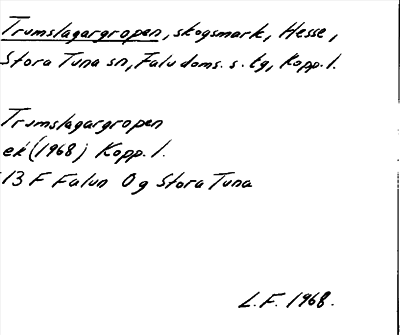 Trumslagargropen, skogsmark, Hesse,
Stora Tuna sn, Falu doms. s. tg, Kopp. l.
Trumslagargropen
ek (1968) Kopp. l.
13 F Falun 0 g Stora Tuna
L. F. 1968.